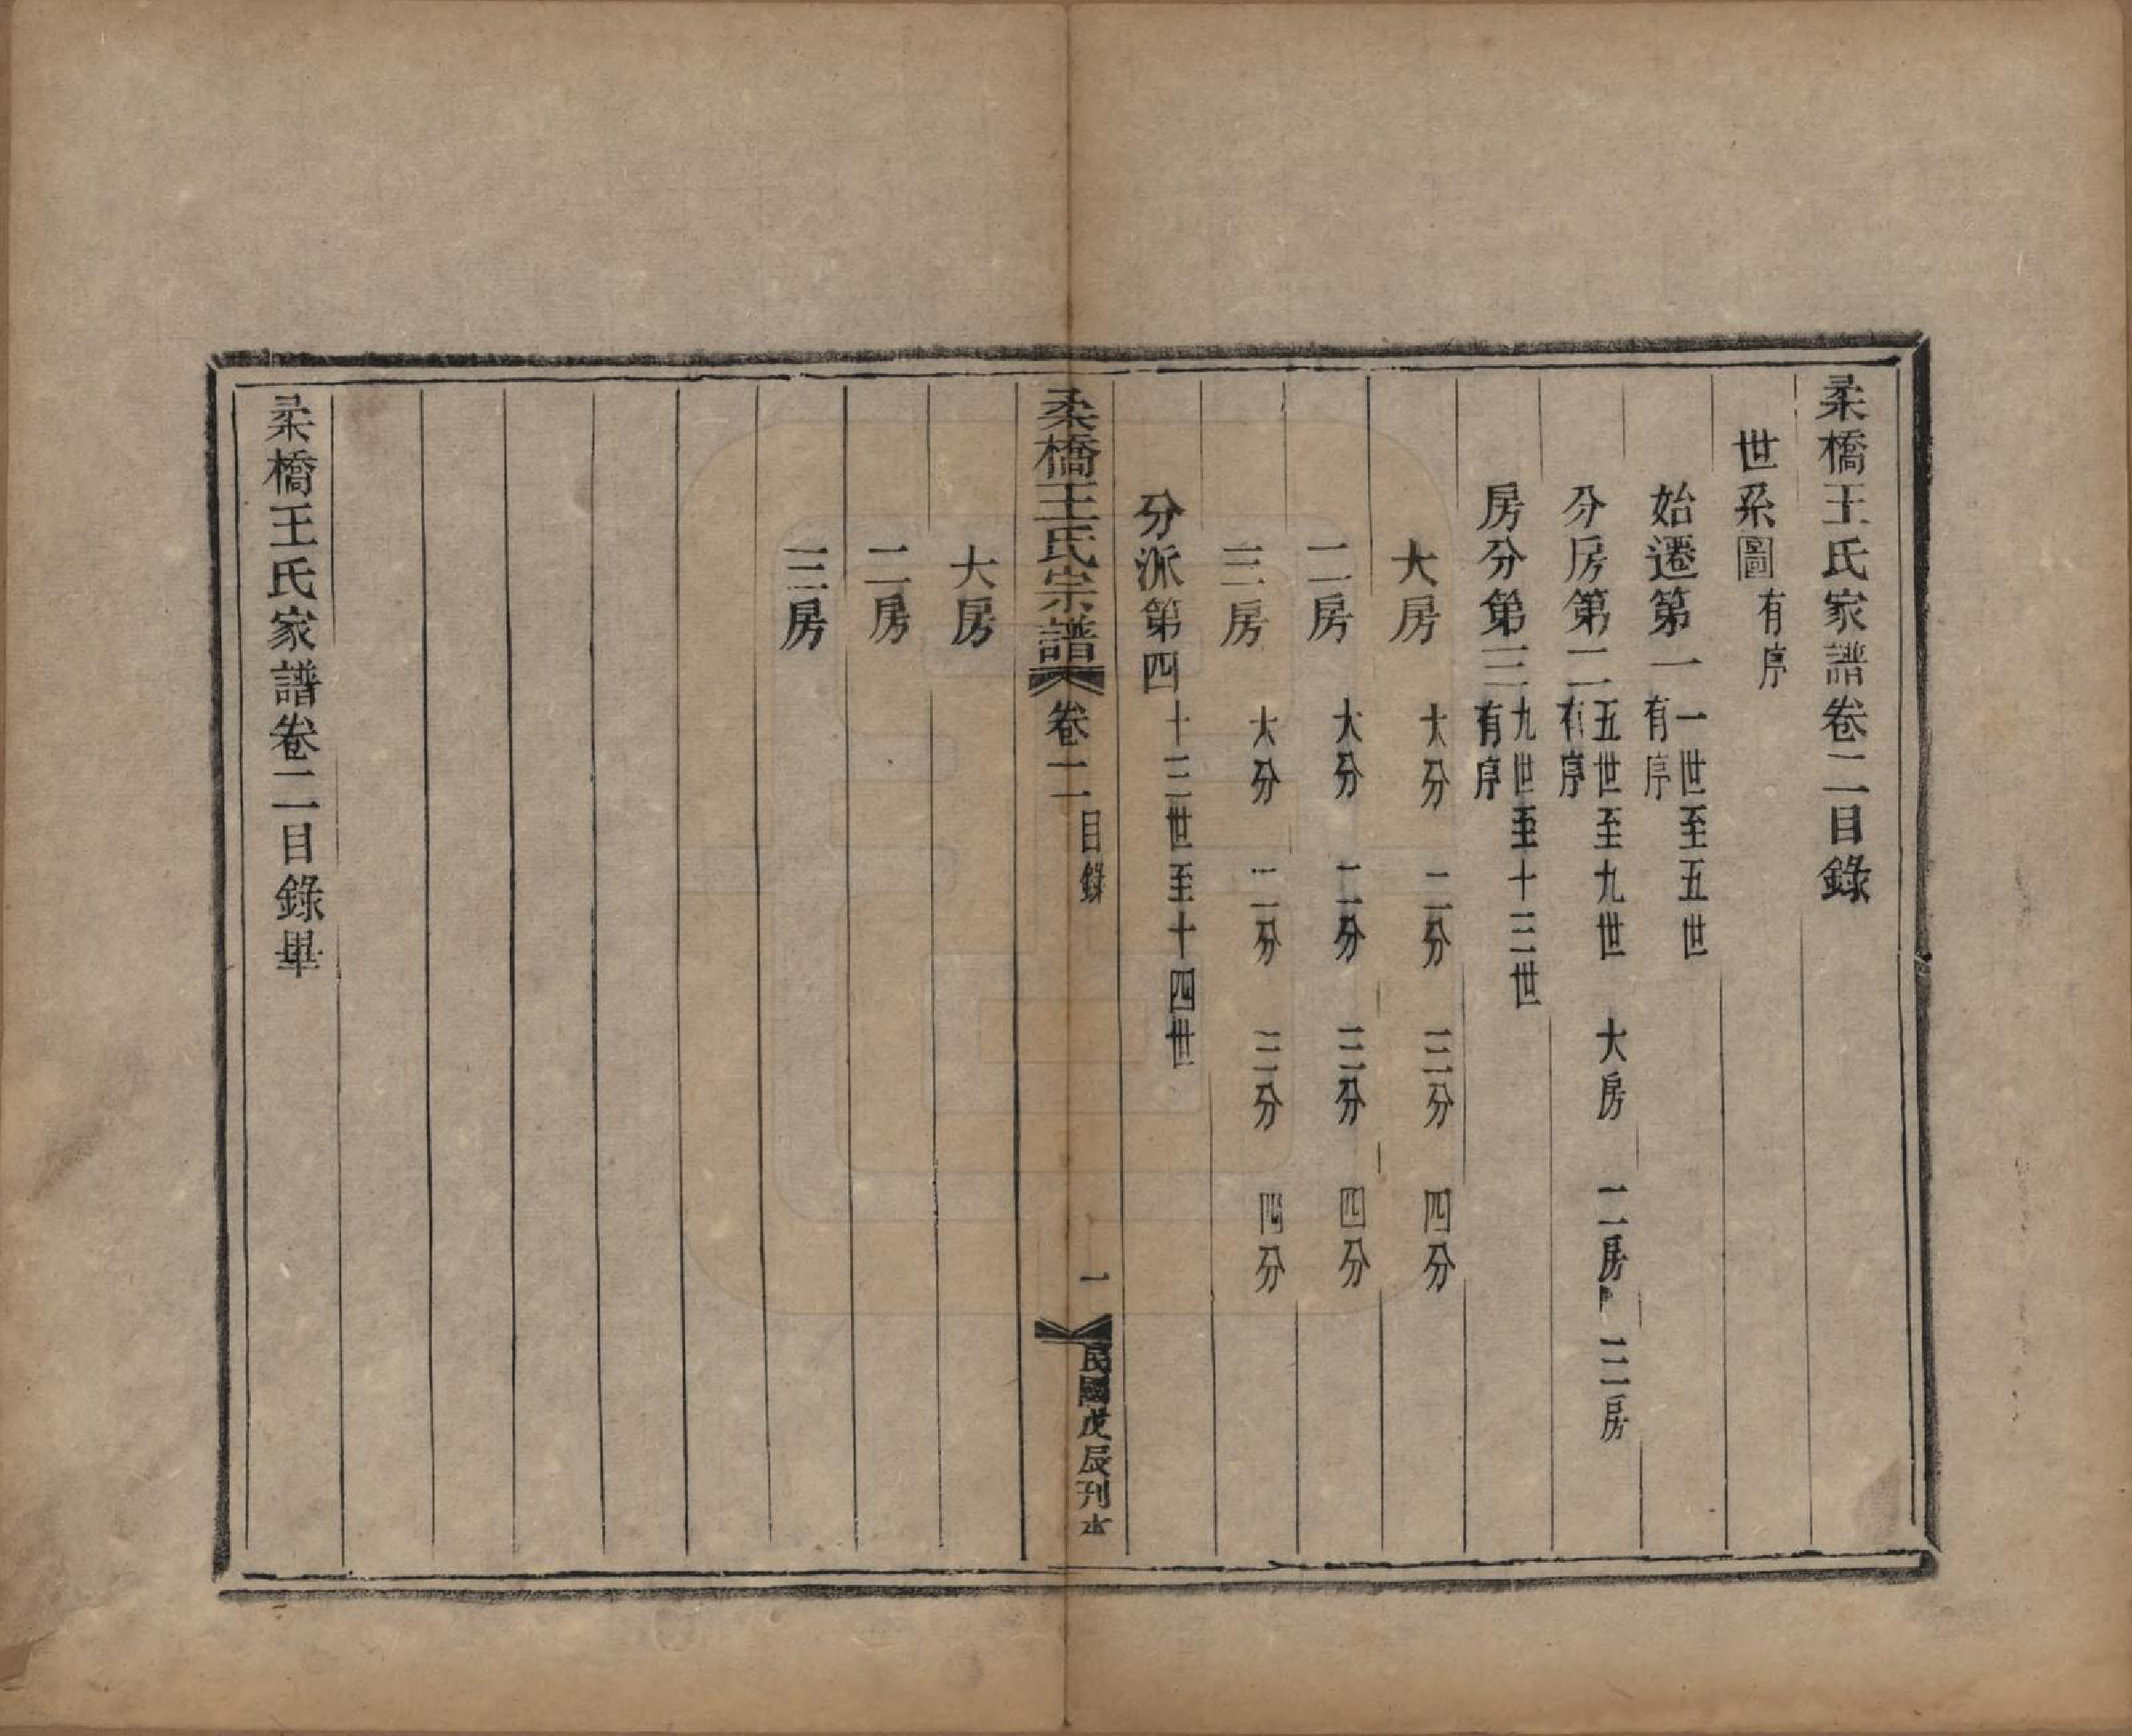 柔橋王氏家譜卷二目錄
世系圖有序
始遷第一一世至五世有序
分房第二五世至九世 大房 二房 三房有序
房分第三九世至十三世有序
大房 大分 二分 三分 四分
二房 大分 二分 三分 四分
三房 大分 二分 三分 四分
分派第四十三世至十四世
柔橋王氏宗譜 卷二 目錄 一 民國戊辰刊本
大房
二房
三房
柔橋王氏家譜卷二目錄畢